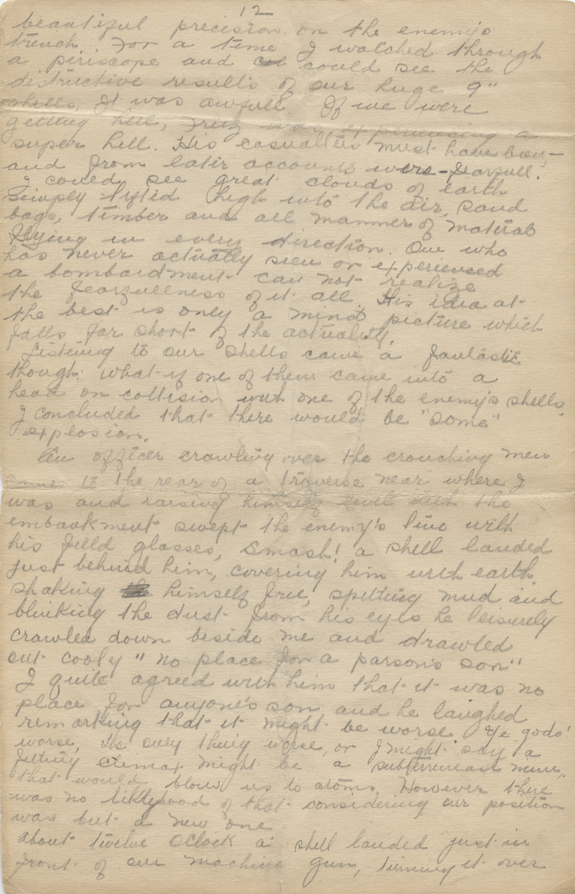 12
beautiful precision on the enemy's
trench. For a time I watched through
a periscope and could see the
distructive results of our huge 9"
shells. It was awfull. If we were
getting hell, Fritz was experiencing a
super hell. His casualties must have been -
and from later accounts were - fearfull.
I could see great clouds of earth
simply lifted high into the air, sand
bags, timber and all manner of material
flying in every direction. One who
has never actually seen or experienced
a bombardment can not realize
the fearfullness of it all. His idea at
the best is only a mind picture which
falls far short of the actuality.
Listening to our shells came a fantastic
though: what if one of them came into a
head on collision with one of the enemy's shells,
I concluded that there would be "some"
explosion.
An officer crawling over the crouching men
came to the rear of a traverse near where I
was and raising himself level with the
embankment swept the enemy's line with
his field glasses, Smash! a shell landed
just behind him, covering him with earth.
shaking himself free, spitting mud and
blinking the dust from his eyes he leisurely
crawled down beside me and drawled
out cooly "no place for a parson's son"
I quite agreed with him that it was no
place for anyone's son and he laughed
remarking that it might be worse. Ye gods'
worse, the only thing worse, or I might say a
fitting climax might be a subterrenean mine,
that would blow us to atoms. However there
was no liklyhood of that considering our position
was but a new one
about twelve O'clock a shell landed just in
front of our machine gun, turning it over